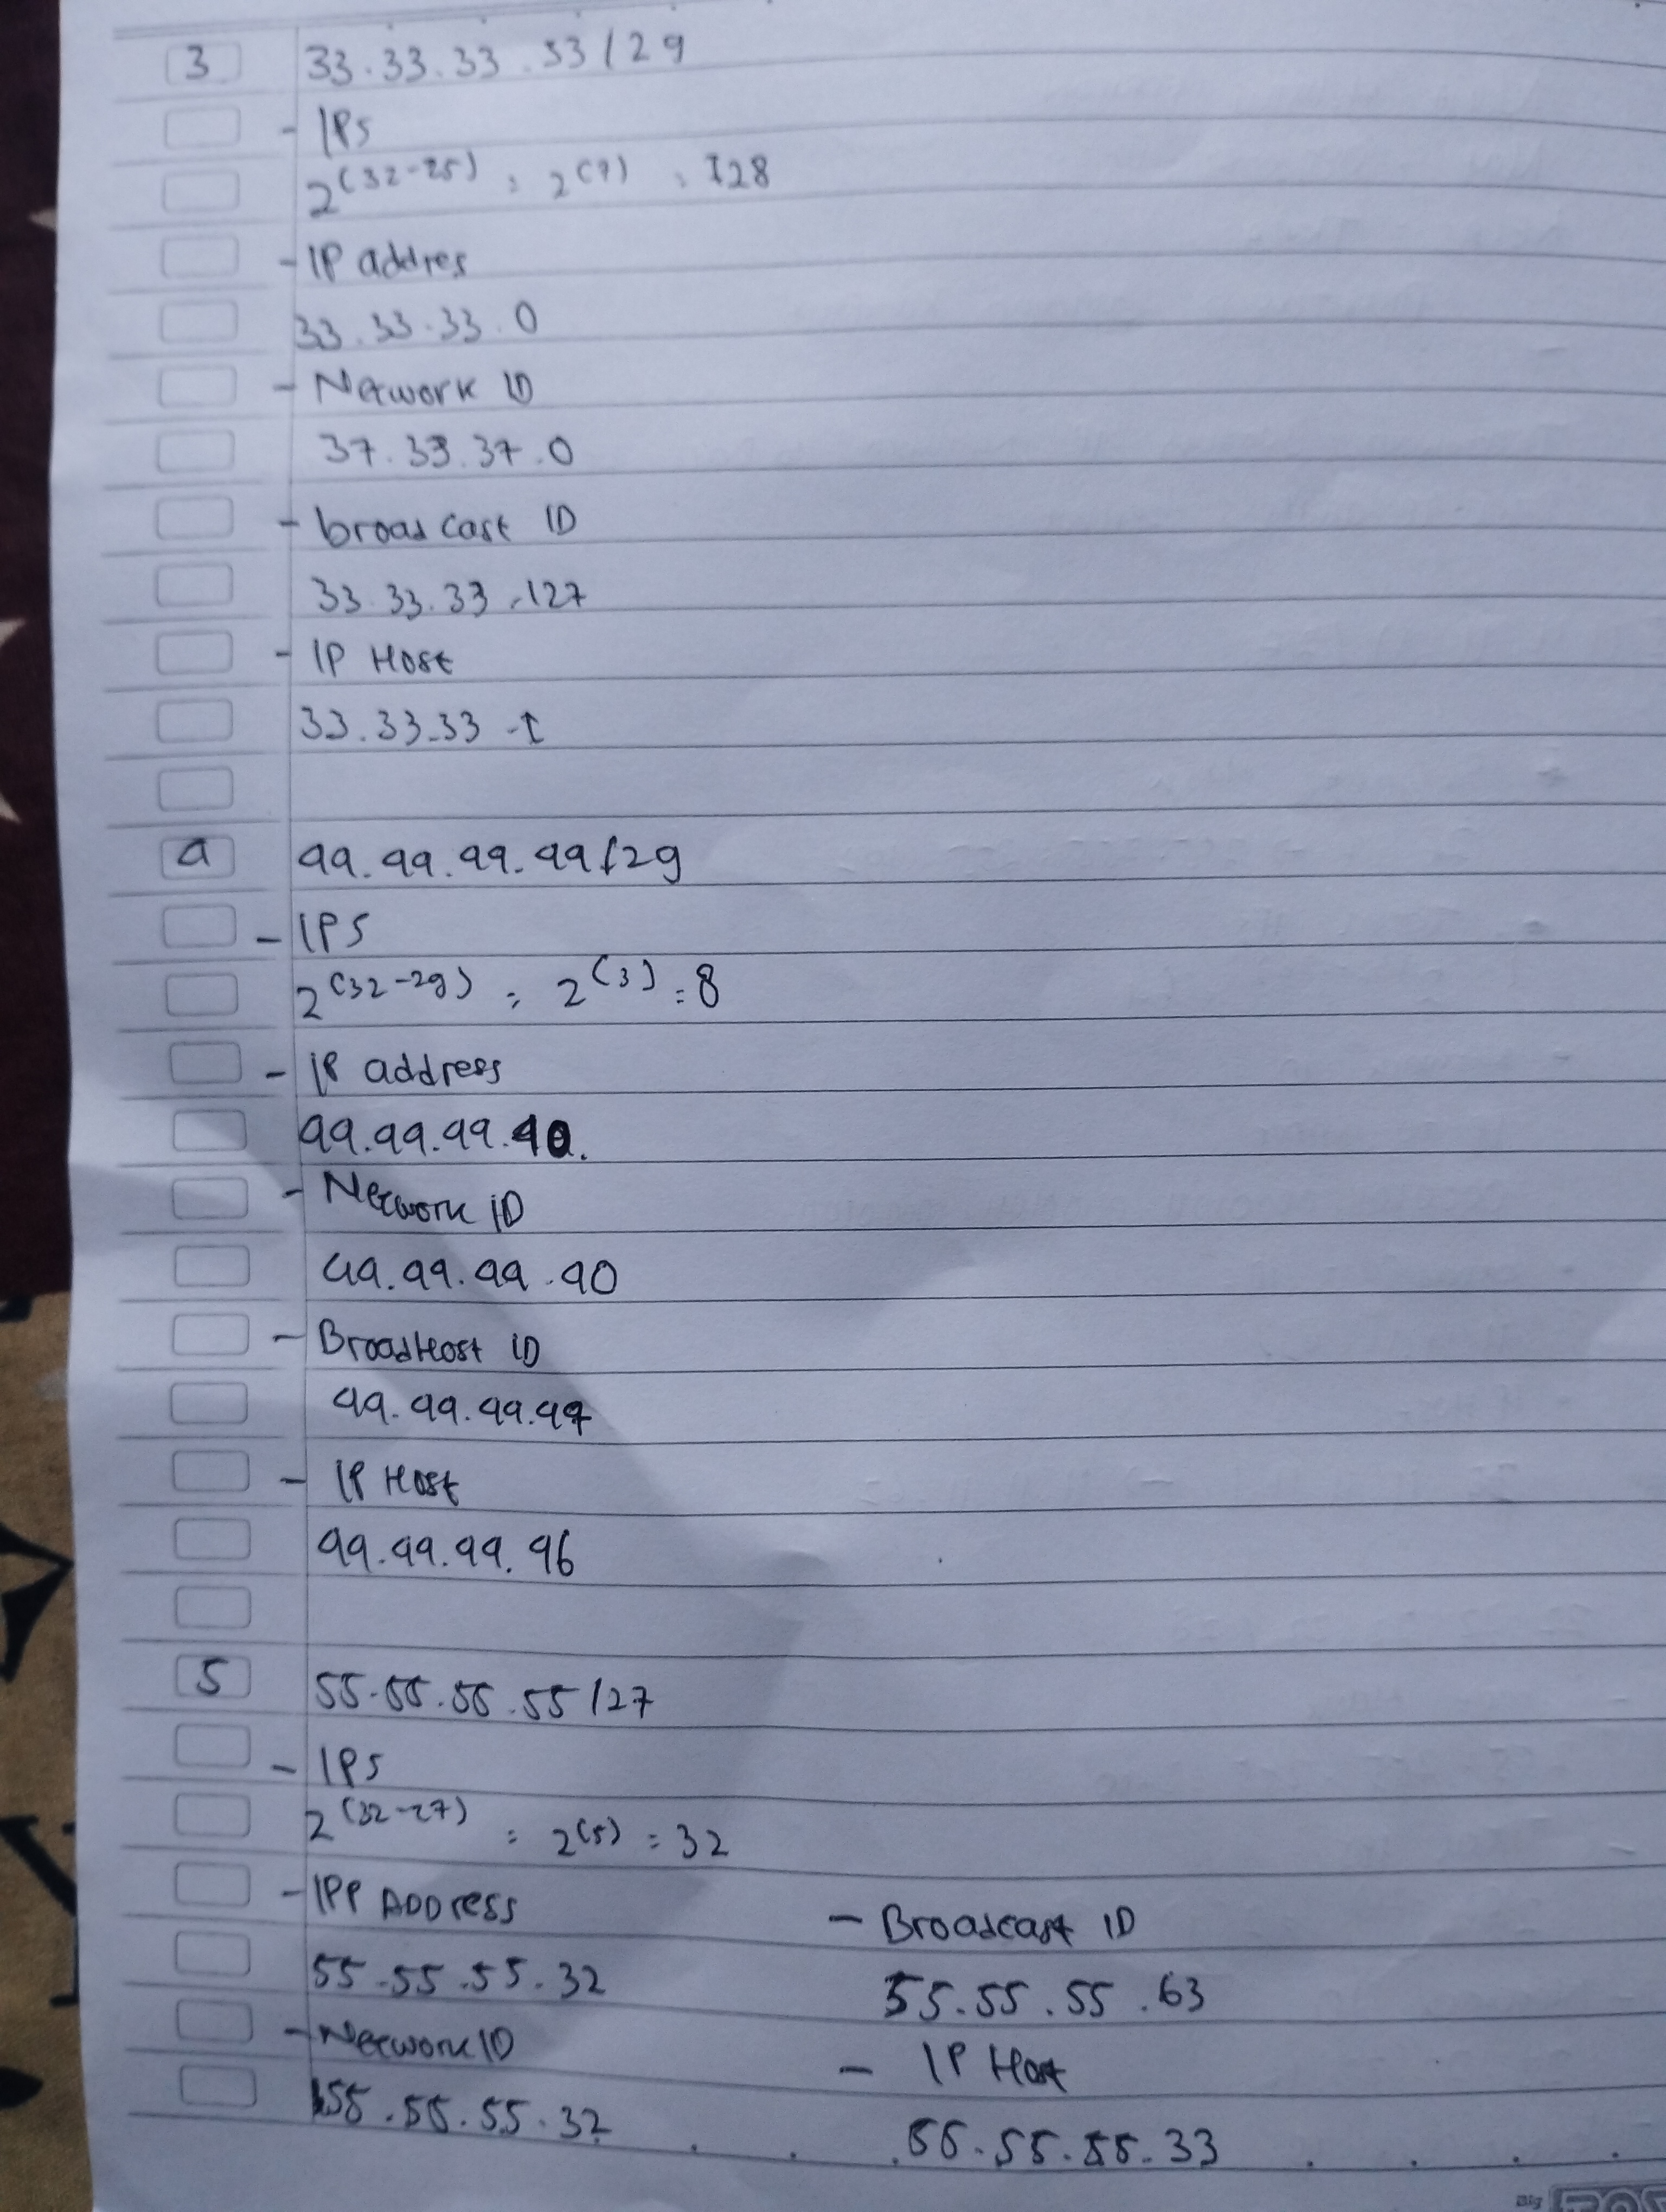 3 33.33.33.33/29
- IPS
2^(32-25) : 2^(7) : 128
- IP addres
33.33.33.0
- Network ID
37.33.37.0
- broadcast ID
33.33.33.127
- IP Host
33.33.33-1
4 99.99.99.99/29
- IPS
2^(32-29) : 2^(3) = 8
- IP address
99.99.99.90.
- Network ID
99.99.99.90
- BroadHost ID
99.99.99.97
- IP Host
99.99.99.96
5 55.55.55.55/27
- IPS
2^(32-27) : 2^(5) = 32
- IPP ADDress
55-55.55.32
- Network ID
55.55.55.32
- Broadcast ID
55.55.55.63
- IP Host
55-55.55.33
Big